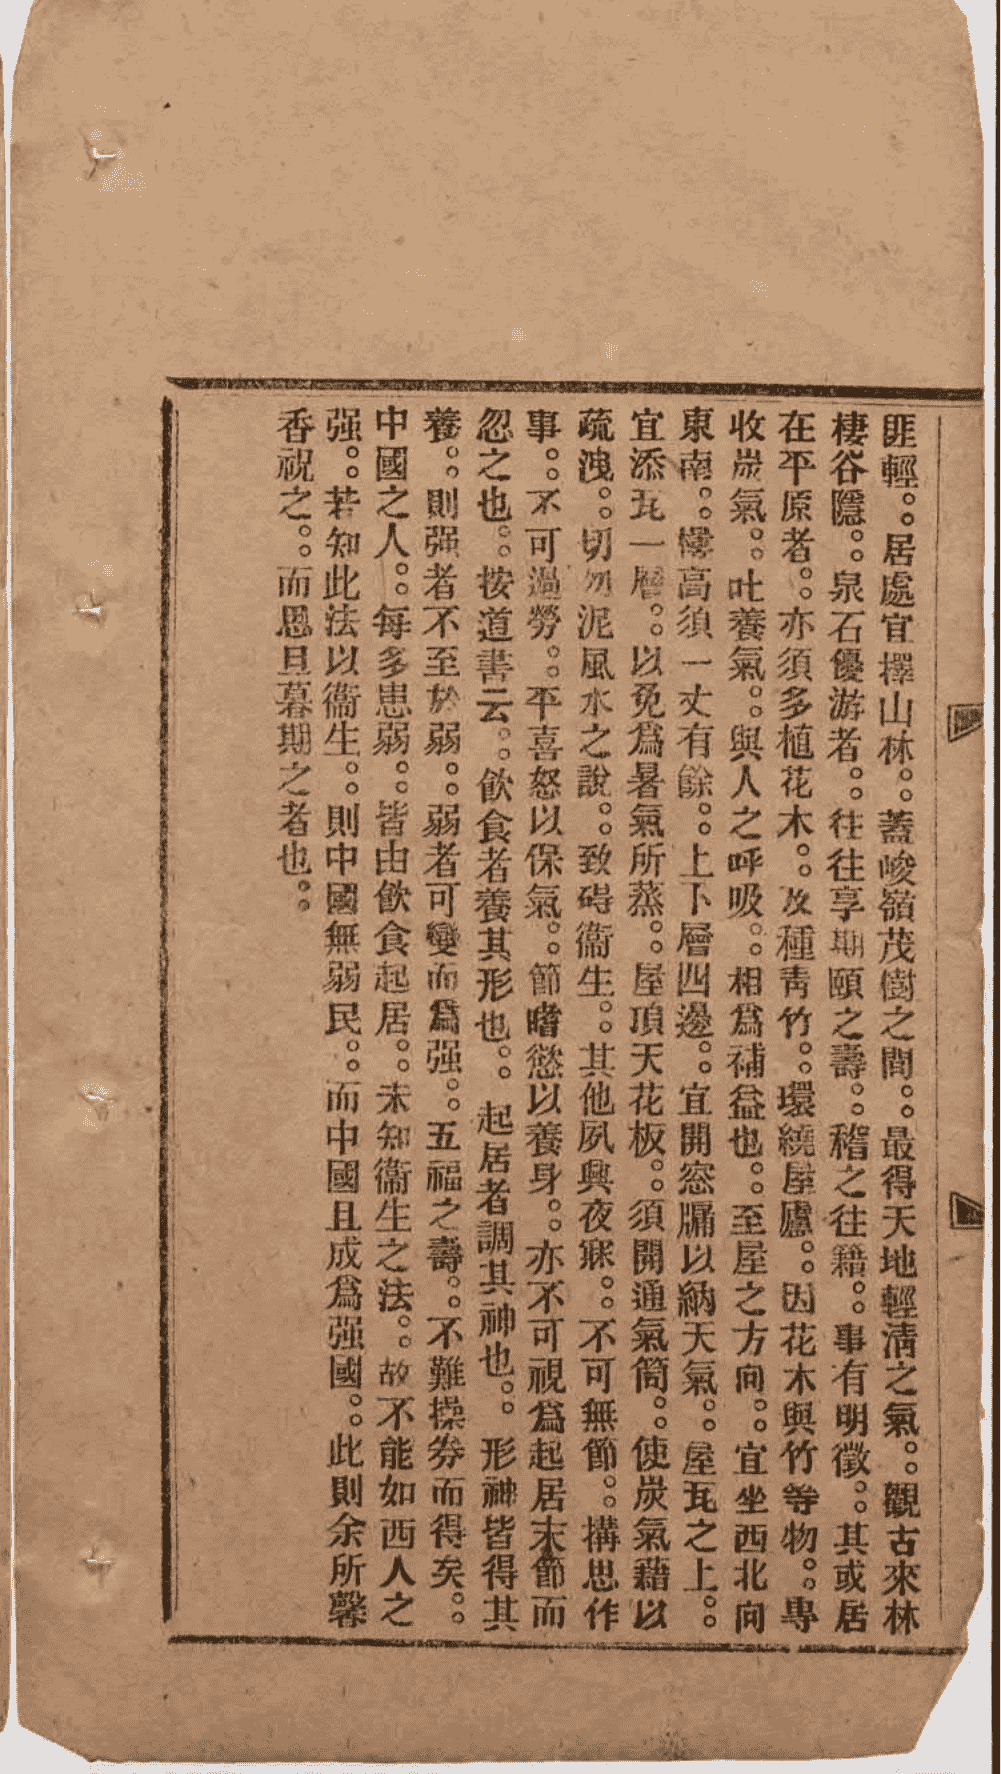 匪輕。。居處宜擇山林。。蓋峻嶺茂樹之間。。最得天地輕清之氣。。觀古來林
棲谷隱。。泉石優游者。。往往享期頤之壽。。稽之往籍。。事有明徵。。其或居
在平原者。。亦須多植花木。。及種靑竹。。環繞屋廬。。因花木與竹等物。。專
收炭氣。。吐養氣。。與人之呼吸。。相爲補益也。。至屋之方向。。宜坐西北向
東南。。樓高須一丈有餘。。上下層四邊。。宜開窓牖以納天氣。。屋瓦之上。。
宜添瓦一層。。以免爲暑氣所蒸。。屋頂天花板。。須開通氣筒。。使炭氣藉以
疏洩。。切勿泥風水之說。。致碍衞生。。其他夙興夜寐。。不可無節。。搆思作
事。。不可過勞。。平喜怒以保氣。。節嗜慾以養身。。亦不可視爲起居末節而
忽之也。。按道書云。。飲食者養其形也。。起居者調其神也。。形神皆得其
養。。則强者不至於弱。。弱者可變而爲强。。五福之壽。。不難操券而得矣。。
中國之人。。每多患弱。。皆由飲食起居。。未知衞生之法。。故不能如西人之
强。。若知此法以衞生。。則中國無弱民。。而中國且成爲强國。。此則余所馨
香祝之。。而思旦暮期之者也。。